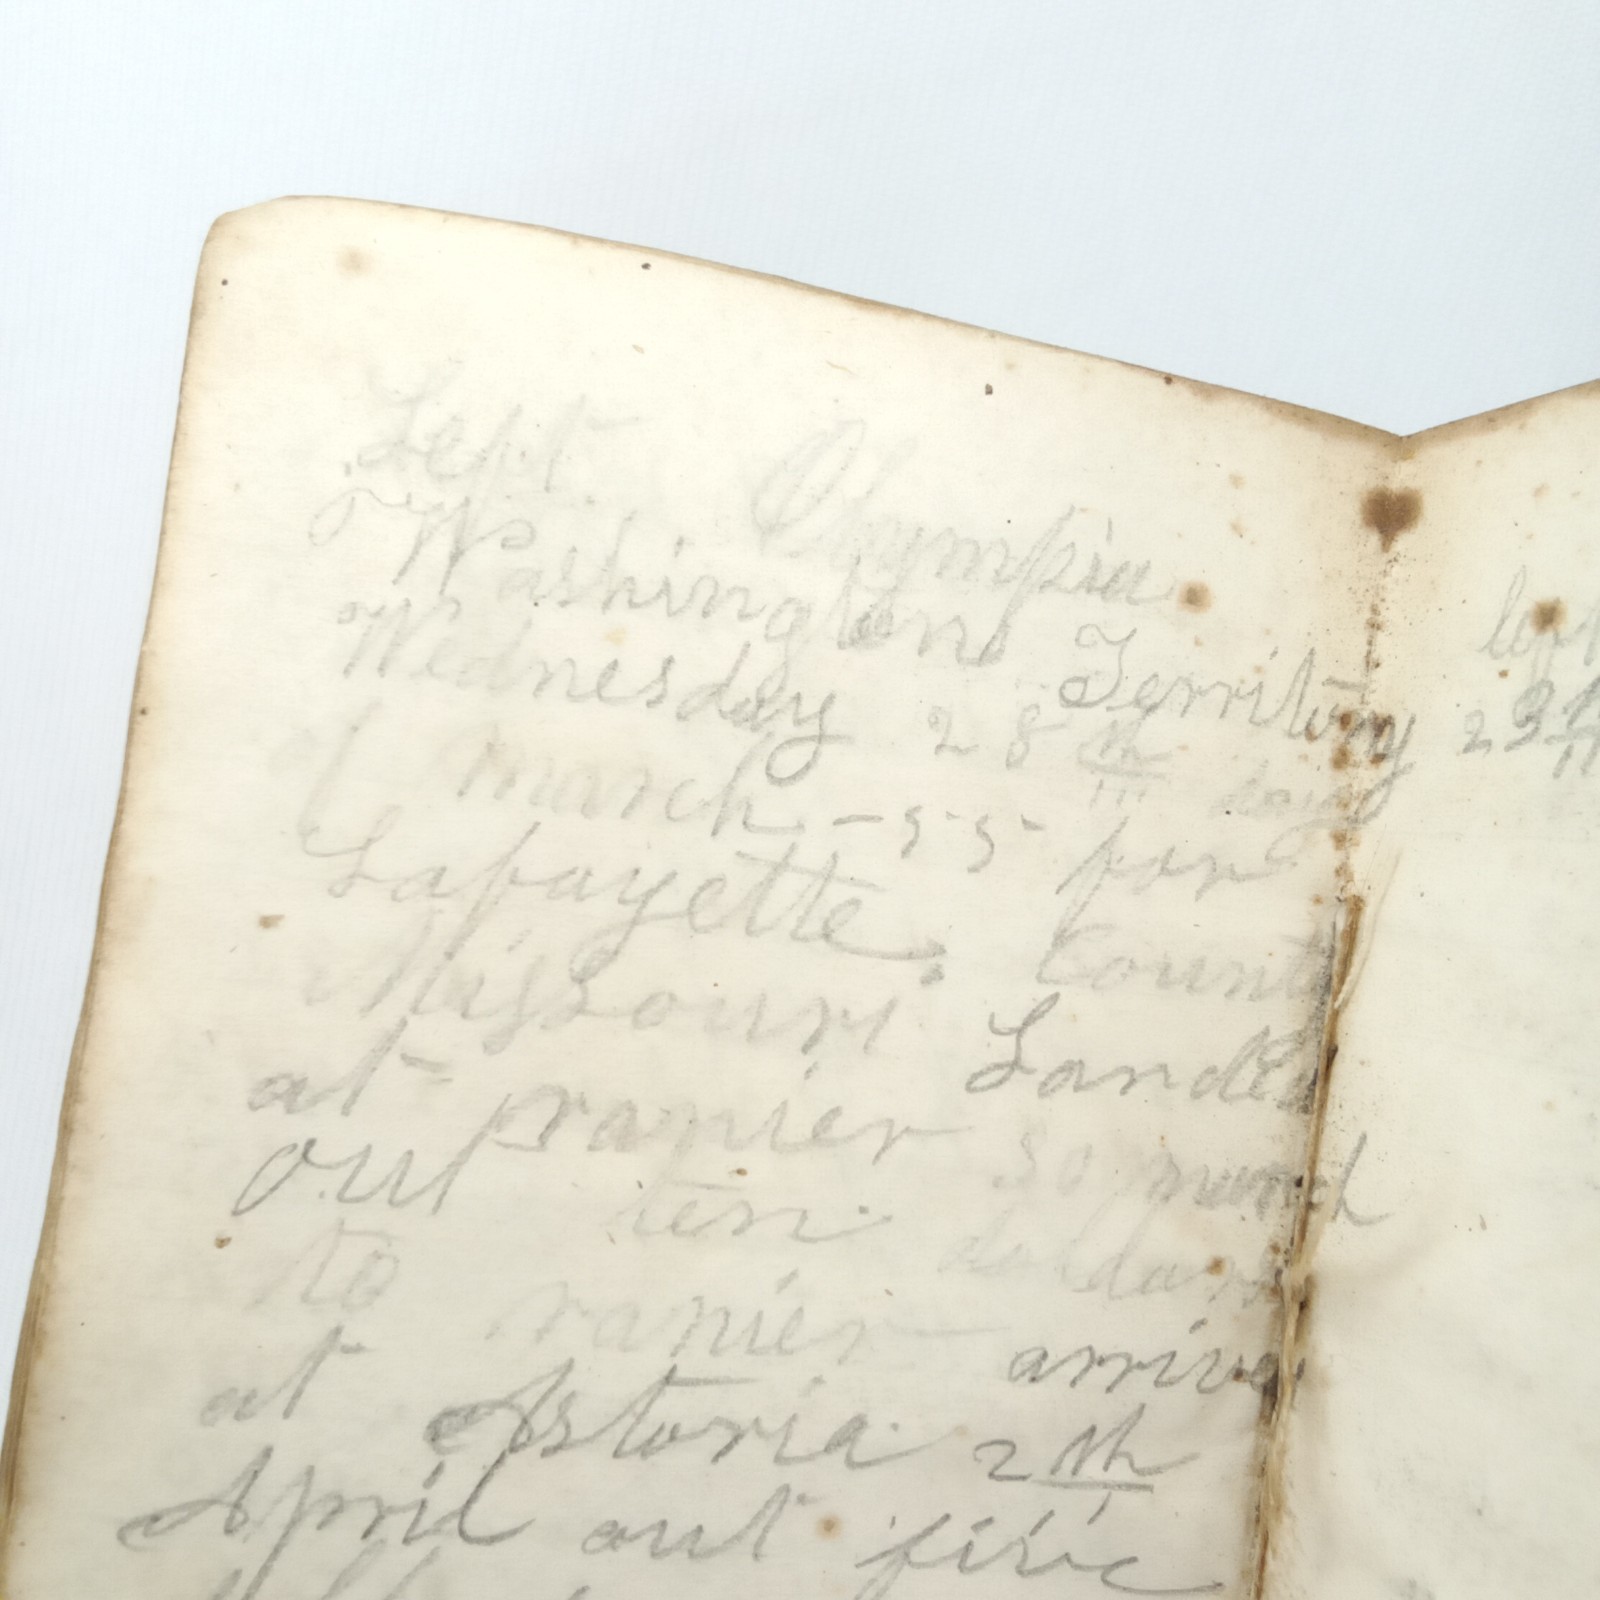 Left Olympia
Washington Territory
Wednesday 28th day
of March - 55 for
Lafayette, County
Missouri Landed
at ranier 30 march
out ten dollars
to ranier arrive
at Astoria 2th
April out five
left
23